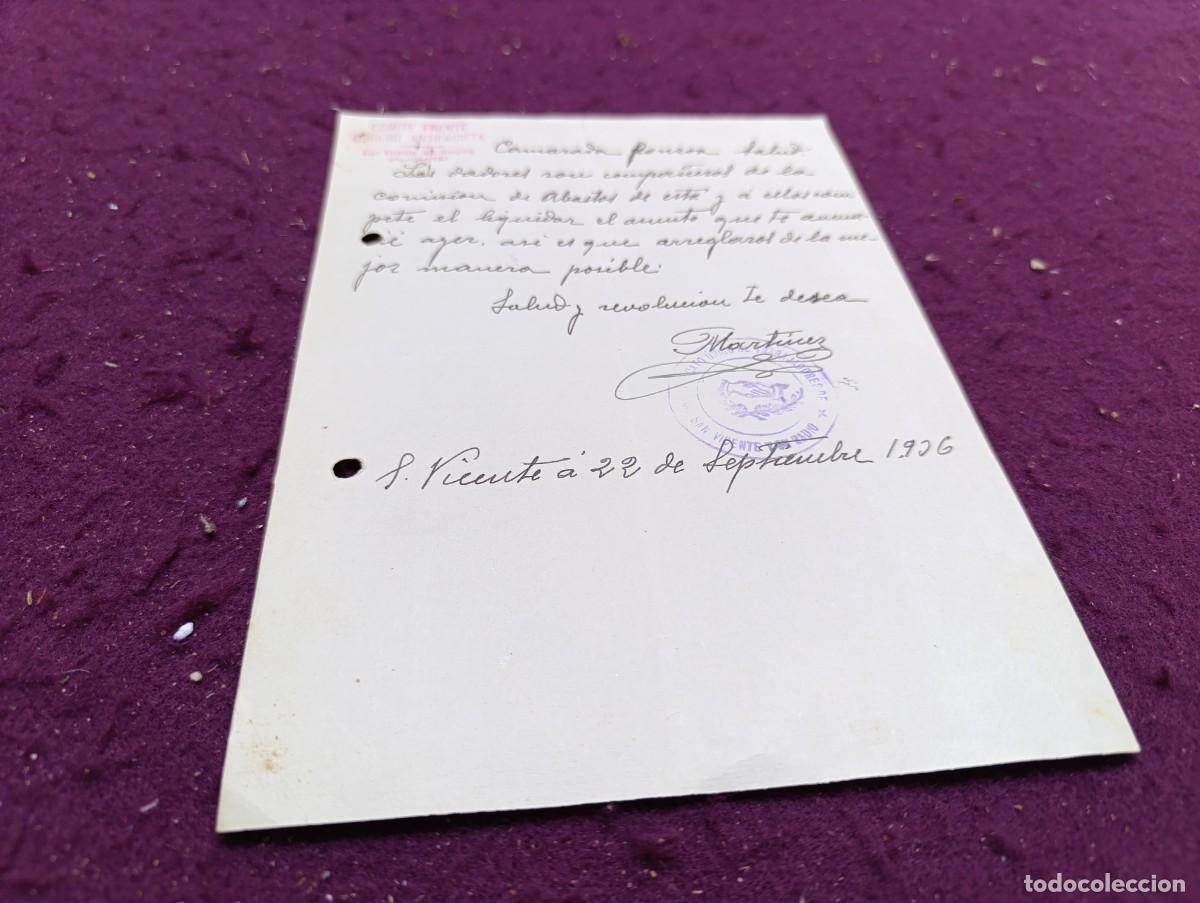 COMITE FRENTE
Camarada Salud.
Los dadores son compañeros de la
comision de Abastos de esta y á ellos com
pete el liquidar el asunto que te anun-
cié ayer, asi es que arreglaros de la me-
jor manera posible.
Salud y revolucion te desea
Martinez
SAN VICENTE
S. Vicente á 22 de Septiembre 1.936
todocoleccion